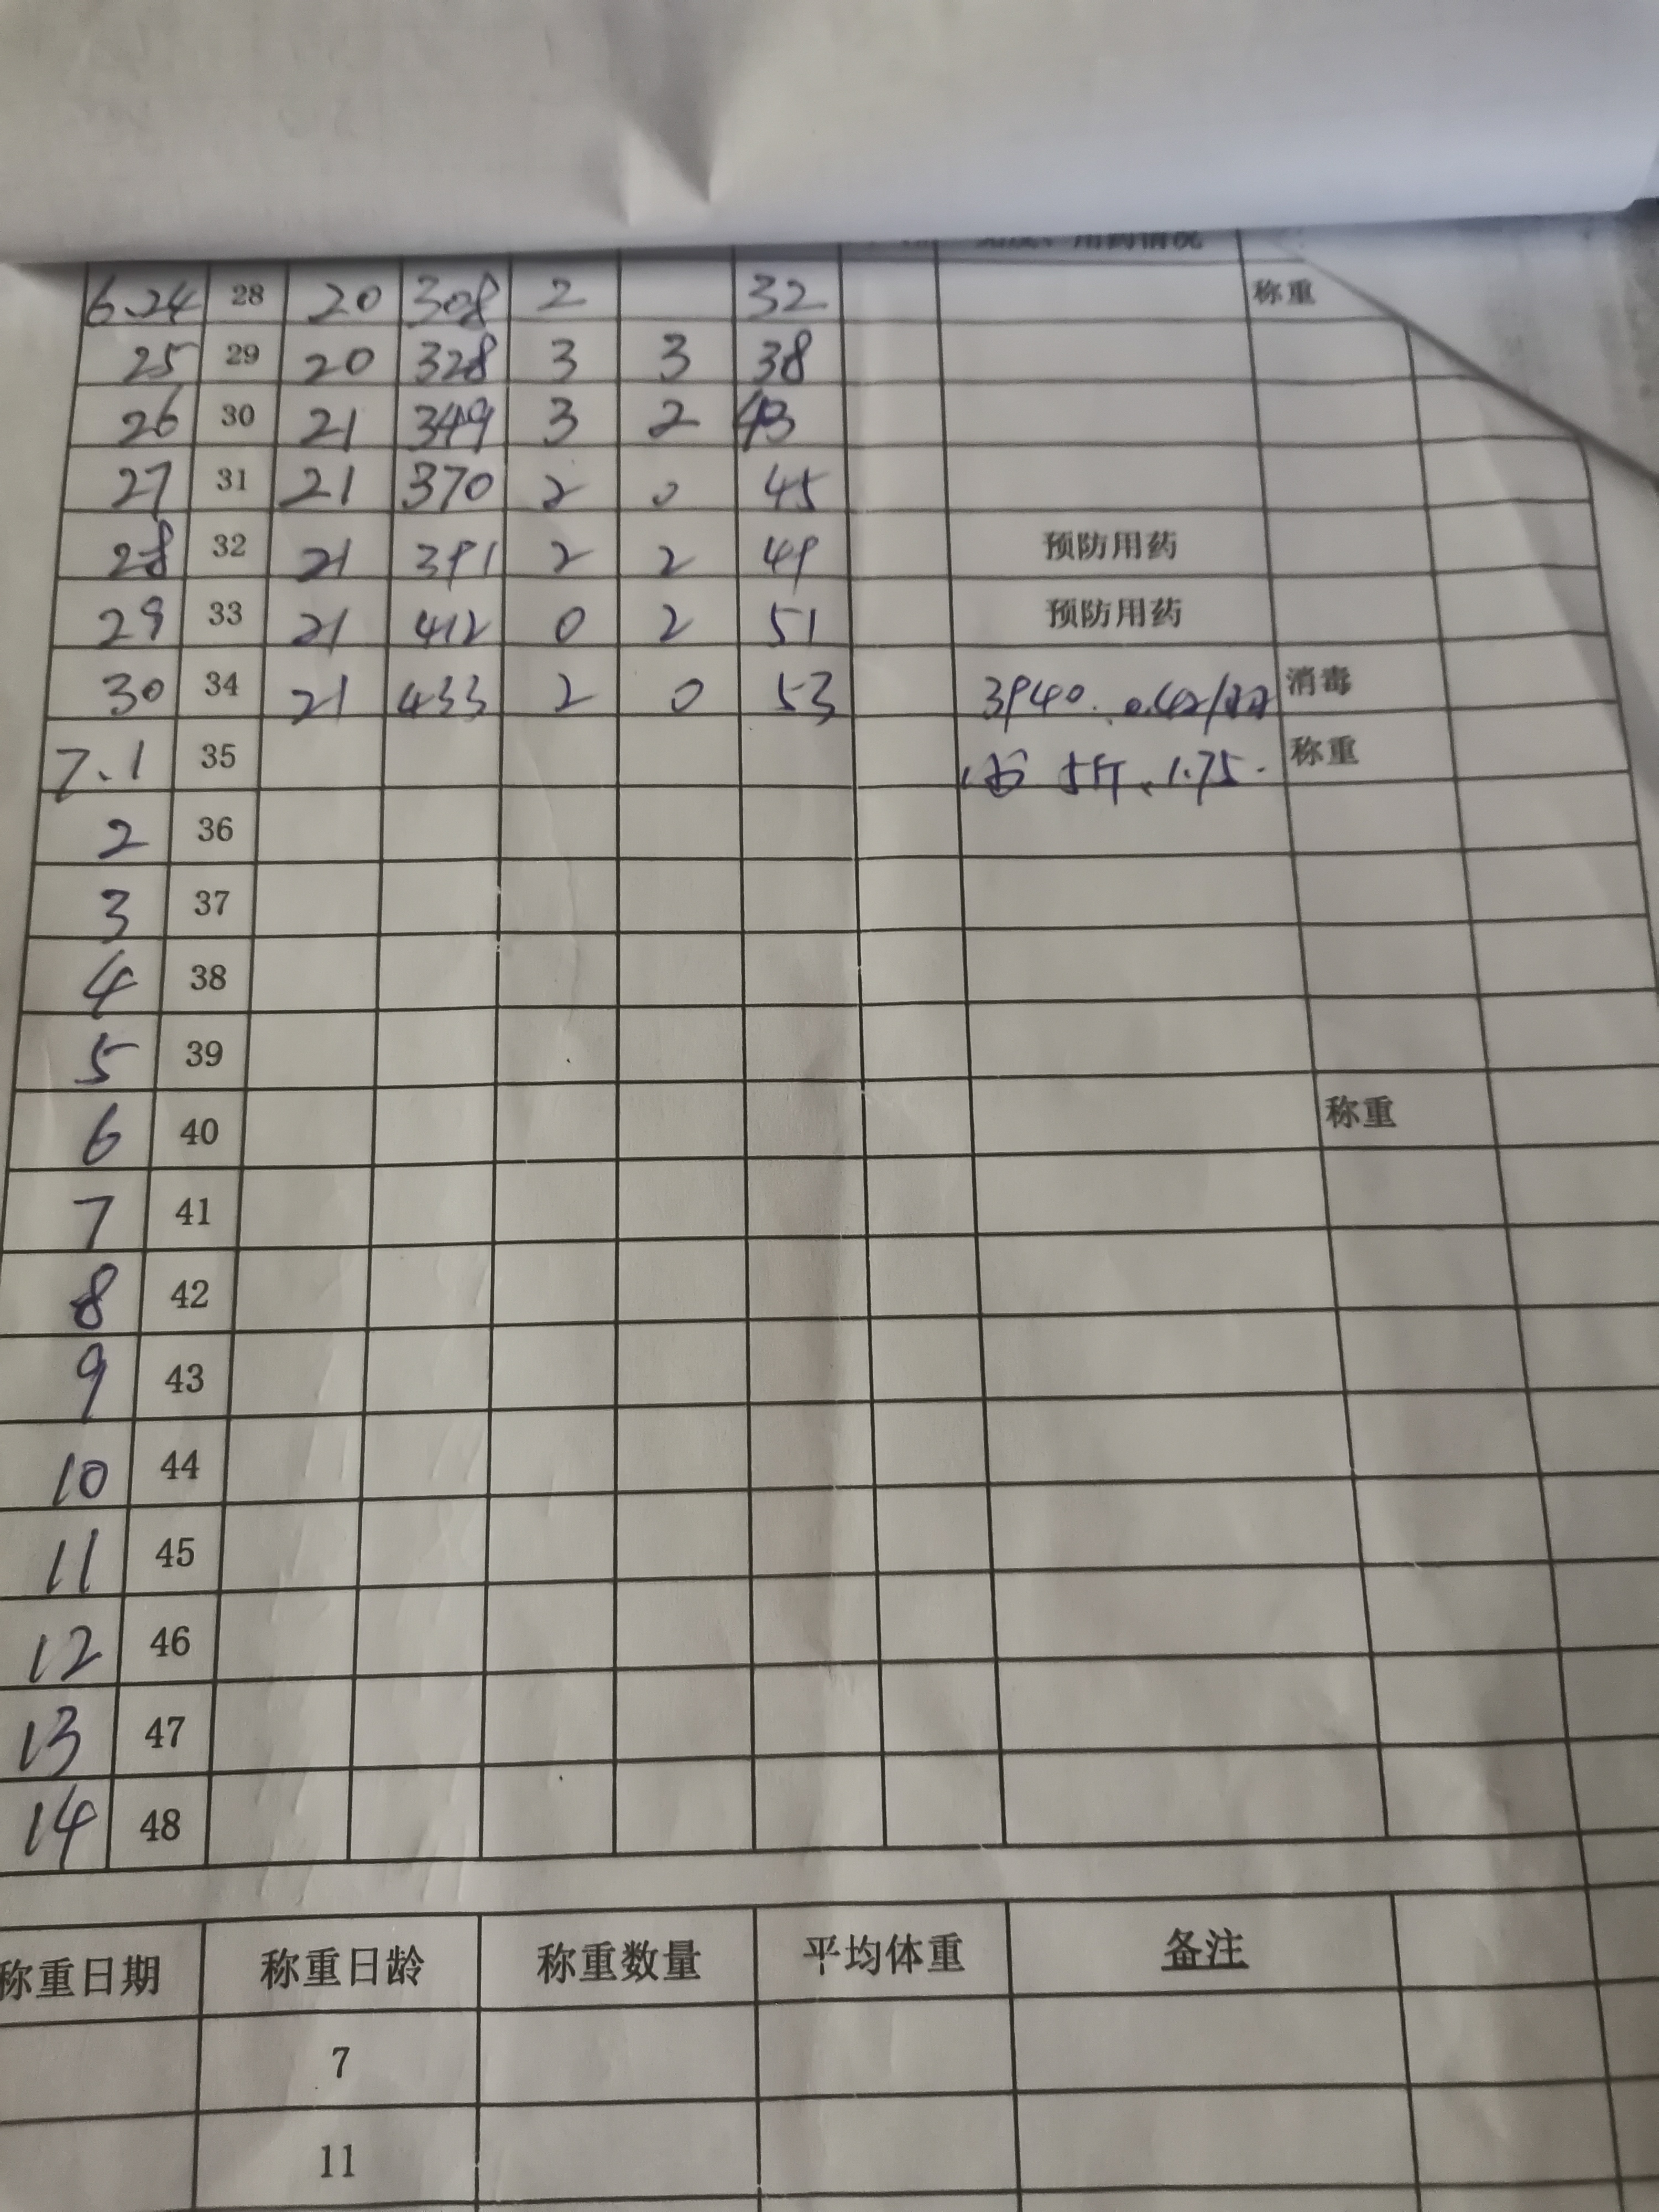 用药情况
6.24 28 20 308 2 32 称重
25 29 20 328 3 3 38
26 30 21 349 3 2 43
27 31 21 370 2 0 45
28 32 21 391 2 2 49 预防用药
29 33 21 412 0 2 51 预防用药
30 34 21 433 2 0 53 3940. 消毒
7.1 35 5斤、1.75. 称重
2 36
3 37
4 38
5 39
6 40 称重
7 41
8 42
9 43
10 44
11 45
12 46
13 47
14 48
称重日期 称重日龄 称重数量 平均体重 备注
7
11